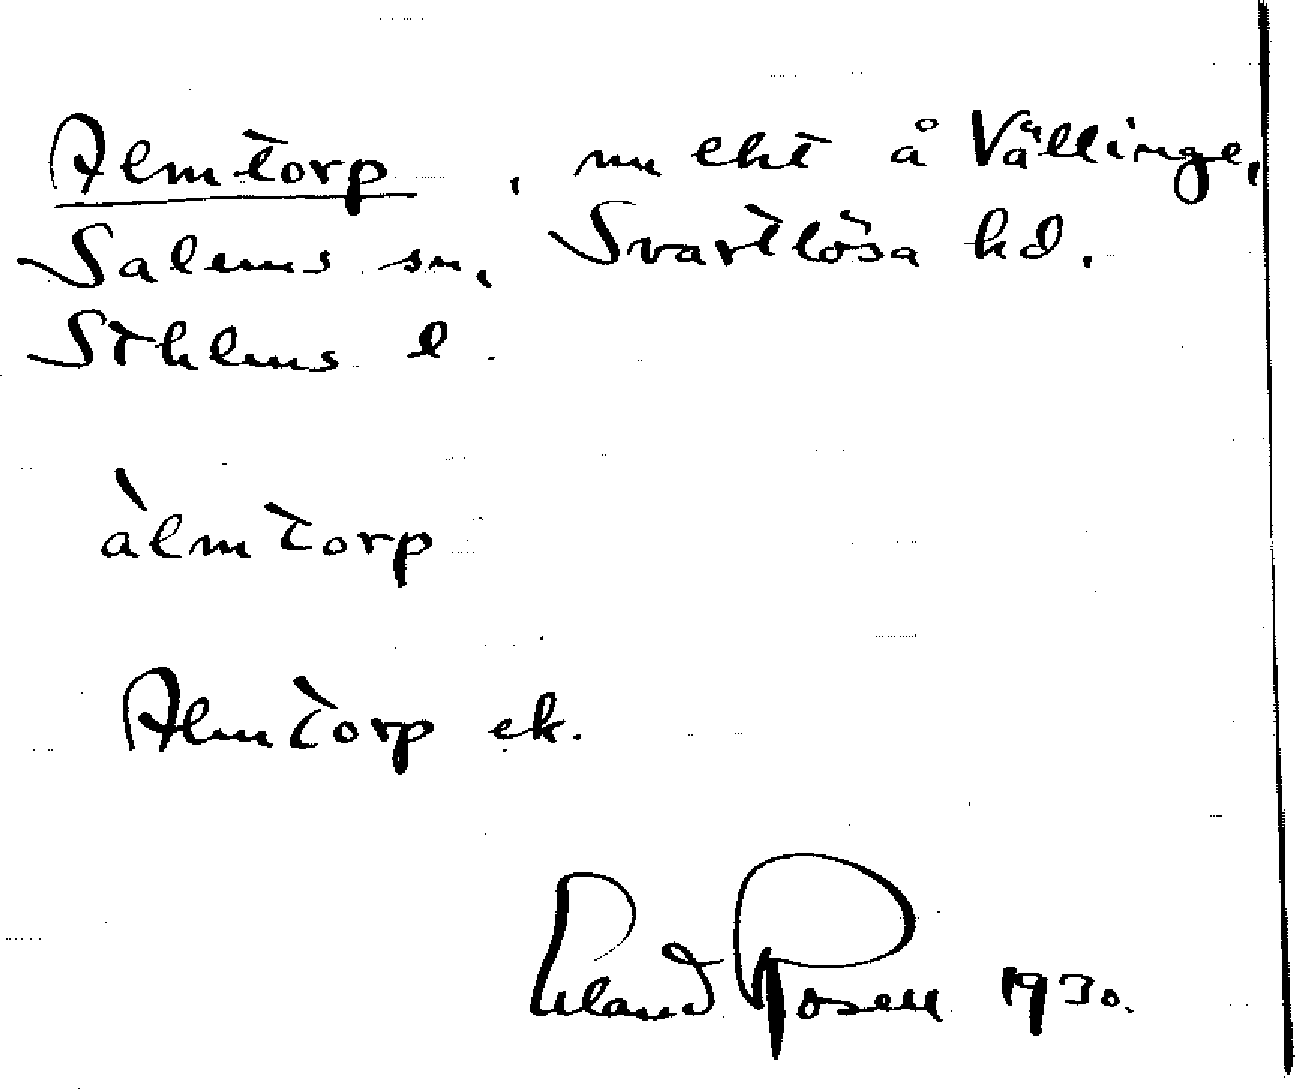 Almtorp, nu lht å Vällinge,
Salems sn, Svartlösa hd.
Sthlms l.
àlmtorp
Almtorp ek.
Erland Rosell 1930.